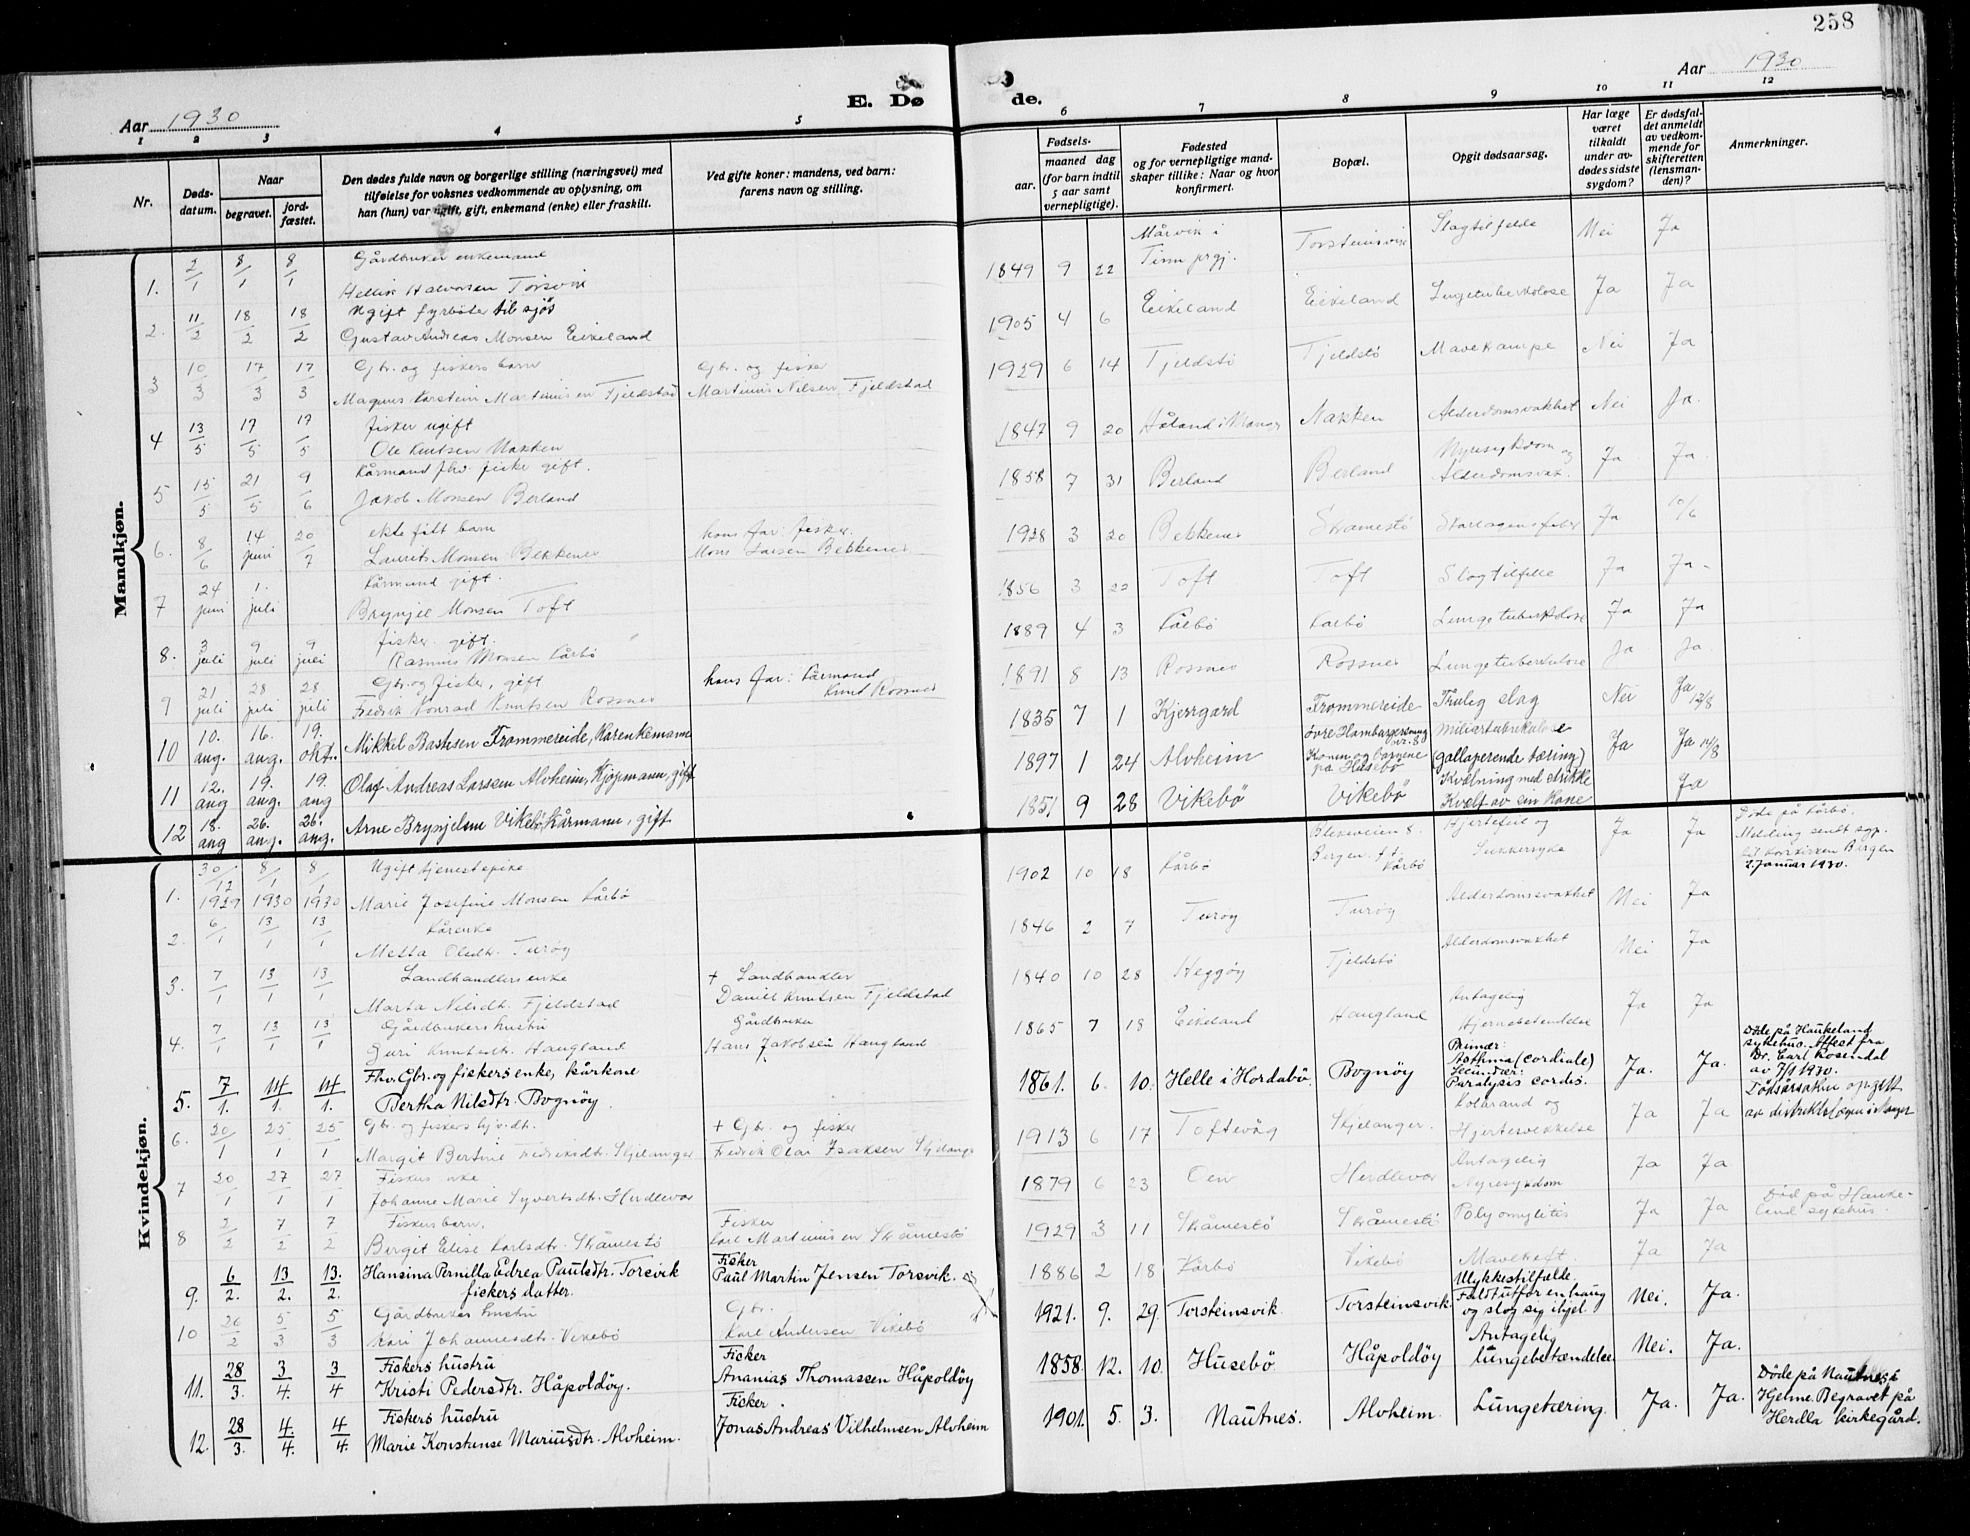 258
Aar 1930
E. Dø
de.
Aar 1930
1 2 3 4 5 6 7 8 9 10 11 12
Nr.
Døds-
datum.
Naar
begravet.
jord-
fæstet.
Den dødes fulde navn og borgerlige stilling (næringsvei) med
tilføielse for voksnes vedkommende av oplysning, om
han (hun) var ugift, gift, enkemand (enke) eller fraskilt.
Ved gifte koner: mandens, ved barn:
farens navn og stilling.
Fødsels-
aar.
maaned dag
(for barn indtil
5 aar samt
vernepligtige).
Fødested
og for vernepligtige mand-
skaper tillike: Naar og hvor
konfirmert.
Bopæl.
Opgit dødsaarsag.
Har læge
været
tilkaldt
under av-
dødes sidste
sygdom?
Er dødsfal-
det anmeldt
av vedkom-
mende for
skifteretten
(lensman-
den)?
Anmerkninger.
Mandkjøn.
1. 2/1 8/1 8/1 Gårdbruker enkemand
Hellik Halvorsen Torsvik
1849 9 22 Mårvik i
Tinn prgj. Torsteinsvik Slagtilfelde Nei Ja
2. 11/2 18/2 18/2 Ugift fyrbøter til sjøs
Gustav Andreas Monsen Eikeland
1905 4 6 Eikeland Eikeland Lungetuberkolose Ja Ja
3 10/3 17/3 17/3 Gbr. og fiskers barn
Magnus Karstein Martinius en Fjeldstad
Gbr. og fisker
Martinus Nilsen Fjeldstad
1929 6 14 Tjeldstø Tjeldstø Mavekrampe Nei Ja
4 13/5 17/5 17/5 fisker ugift
Ole Knutsen Nakken
1847 9 20 Håland i Manger Nakken Alderdomsvakhet Nei Ja.
5 15/5 21/5 9/6 Kårmand fhv. fisker gift.
Jakob Monsen Berland
1858 7 31 Berland Berland Nyresykdom og
Alderdomsvak. Ja Ja.
6. 8/6 14 juni 20/7 ekte født barn
Laurits Monsen Bekkenes
hans far: fisker.
Mons Larsen Bekkenes
1928 3 20 Bekkenes Skramestø Skarlagensfeber Ja 10/6
7 24 juni 1. juli Kårmand gift.
Brynjel Monsen Toft
1856 3 22 Toft Toft Slagtilfelle Ja Ja
8. 3 juli 9 juli 9 juli fisker. gift.
Rasmus Monsen Kårbø
1889 4 3 Kårbø Karbø Lungetuberkolose Ja Ja
9 21 juli 28 juli 28 juli Gbr. og fisker, gift
Fredrik Konrad Knutsen Rossnes
hans far: Kårmand
Knut Rossnes
1891 8 13 Rossnes Rossnes Lungetuberkulose Ja Ja.
10 10. aug. 16. aug. 19. okt. Mikkel Bastesen Frommereide, Kårenkemann
1835 7 1 Kjerrgard Frommereide Truleg slag Nei Ja 12/8
11 12. aug 19. aug. 19. aug Olaf Andreas Larssen Alvheim, Kjøpmann, gift
1897 1 24 Alvheim Øvre Hambargerdsmug
nr. 8
Konen og barnene
på Husebø Miliærtuberkulose
(gallaperende tæring) Ja Ja 14/8
12 18. aug 26. aug. 26. aug. Arne Brynjelsen Vikebø, Kårmann, gift
1851 9 28 Vikebø Vikebø Kvælning med strikke
Kvelt av sin Kone Ja
Kvindekjøn.
1. 30/12 1929 8/1 1930 8/1 1930 Ugift tjenestepike
Marie Josefine Monsen Kårbø
1902 10 18 Kårbø Blekeveien 8.
Bergen f.t.
Kårbø Hjertefeil og
Sukkersyke Ja Ja Døde på Kårbø.
Melding sendt sgp.
til Korskirken Bergen
2 Januar 1930.
2. 6/1 13/1 13/1 Kårenke
Metta Olsdtr. Turøy
1846 2 7 Turøy Turøy Alderdomssvakhet Nei Ja
3. 7/1 13/1 13/1 Landhandlers enke
Marta Nilsdt. Fjeldstad
+ Landhandler
Daniel Knutsen Fjeldstad
1840 10 28 Heggøy Tjeldstø Alderdomsvakhet Nei Ja
4. 7/1 13/1 13/1 Gårdbrukers hustru
Guri Knutsdtr. Haugland
Gårdbruker
Hans Jakobsen Haugland
1865 7 18 Eikeland Haugland Antagelig
Hjernebetendelse Ja Ja
5. 7/1. 14/1. 14/1. Fhv. Gbr. og fiskers enke, kårkone
Bertha Nilsdtr. Bognøy.
1861. 6. 10. Helle i Hordabø. Bognøy Primær:
Asthma (cordiale)
Secundær:
Paralysis cordis. Ja. Ja. Døde på Haukeland
sykehus. Attest fra
Dr. Carl Rosendal
av 7/1 1930.
6. 20/1 25/1 25/1 Gbr. og fiskers
Margit Bertine Fredriksdtr. Skjelanger
+ Gbr. og fisker
Fredrik Olai Isaksen Skjelanger
1913 6 17 Toftevåg Skjelanger. og
Hjertesvekkelse Ja Ja Dødsårsaken opgitt
av distriktslegen i Manger
7 20/1 27/1 27/1 Fiskers enke
Johanne Marie Syvertsdt. Herdlevær
1879 6 23 Oen Herdlevær Antagelig
Nyresykdom Ja Ja
8 2/2 7/2 7/2 Fiskersbarn.
Birgit Elise Karlsdtr. Skåmestø
Fisker
Karl Martinius en Skåmestø
1929 3 11 Skåmestø Skåmestø Polyomylitis Ja Ja Død på Hauke-
land sykehus.
9. 6/2. 13/2. 13./2. Hansina Pernilla Edrea Paulsdtr. Torsvik
fiskers datter.
Fisker
Paul Martin Jensen Torsvik.
1886 2 18 Kårbø Vikebø Mavekreft. Ja Ja
10 26/2 5/3 5/3 Gårdbrukers hustru
Kari Johannesdtr. Vikebø
Gbr.
Karl Andersen Vikebø
1921. 9. 29. Torsteinsvik. Torsteinsvik. Ulykkestilfælde
Faldt utfor en haug
og slog sig ihjel. Nei. Ja.
11. 28/3. 3/4. 3/4 Fiskers hustru
Kristi Pedersdtr. Håpoldøy.
Fisker
Ananias Thomassen Håpoldøy
1858. 12. 10. Husebø Håpoldøy Antagelig
lungebetændelse. Nei. Ja.
12. 28/3. 4/4. 4/4. Fiskers hustru
Marie Konstanse Mariusdtr. Alvheim.
Fisker.
Jonas Andreas Vilhelmsen Alvheim
1901. 5. 3. Nautnes. Alvheim. Lungetæring. Ja. Ja. Døde på Nautnes i
Hjelme. Begravet på
Herdla kirkegård.